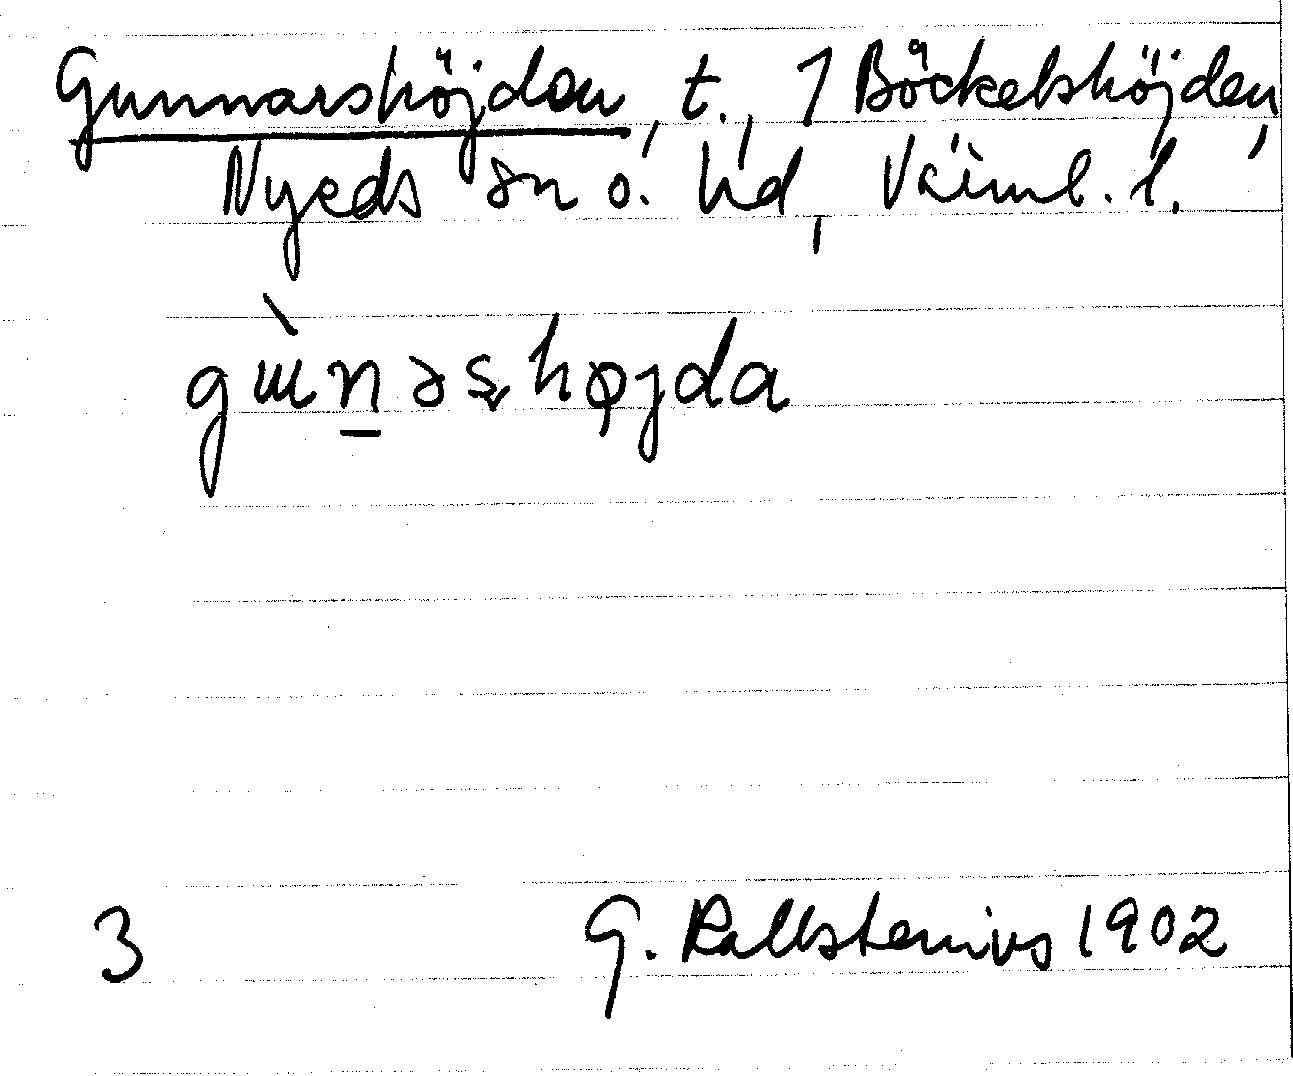 Gunnarshöjden, t., 1 Böckelshöjden,
Nyeds sn o. hd, Värml. l.
gɯ̀n̲əʂhøjda
3 G. Kallstenius 1902